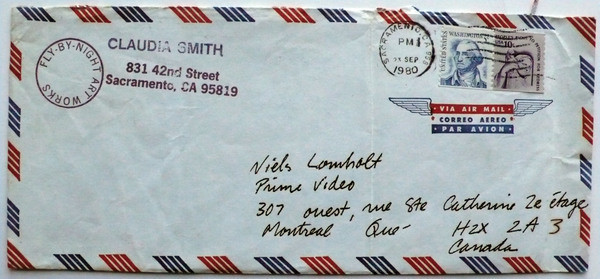 FLY-BY-NIGHT ART WORKS
CLAUDIA SMITH
831 42nd Street
Sacramento, CA 95819
SACRAMENTO, CA
PM
23 SEP
1980
WASHINGTON
UNITED STATES
10c
VIA AIR MAIL
CORREO AEREO
PAR AVION
Niels Lomholt
Prime Video
307 ouest, rue Ste Catherine 2e étage
Montreal Que- H2X 2A3
Canada